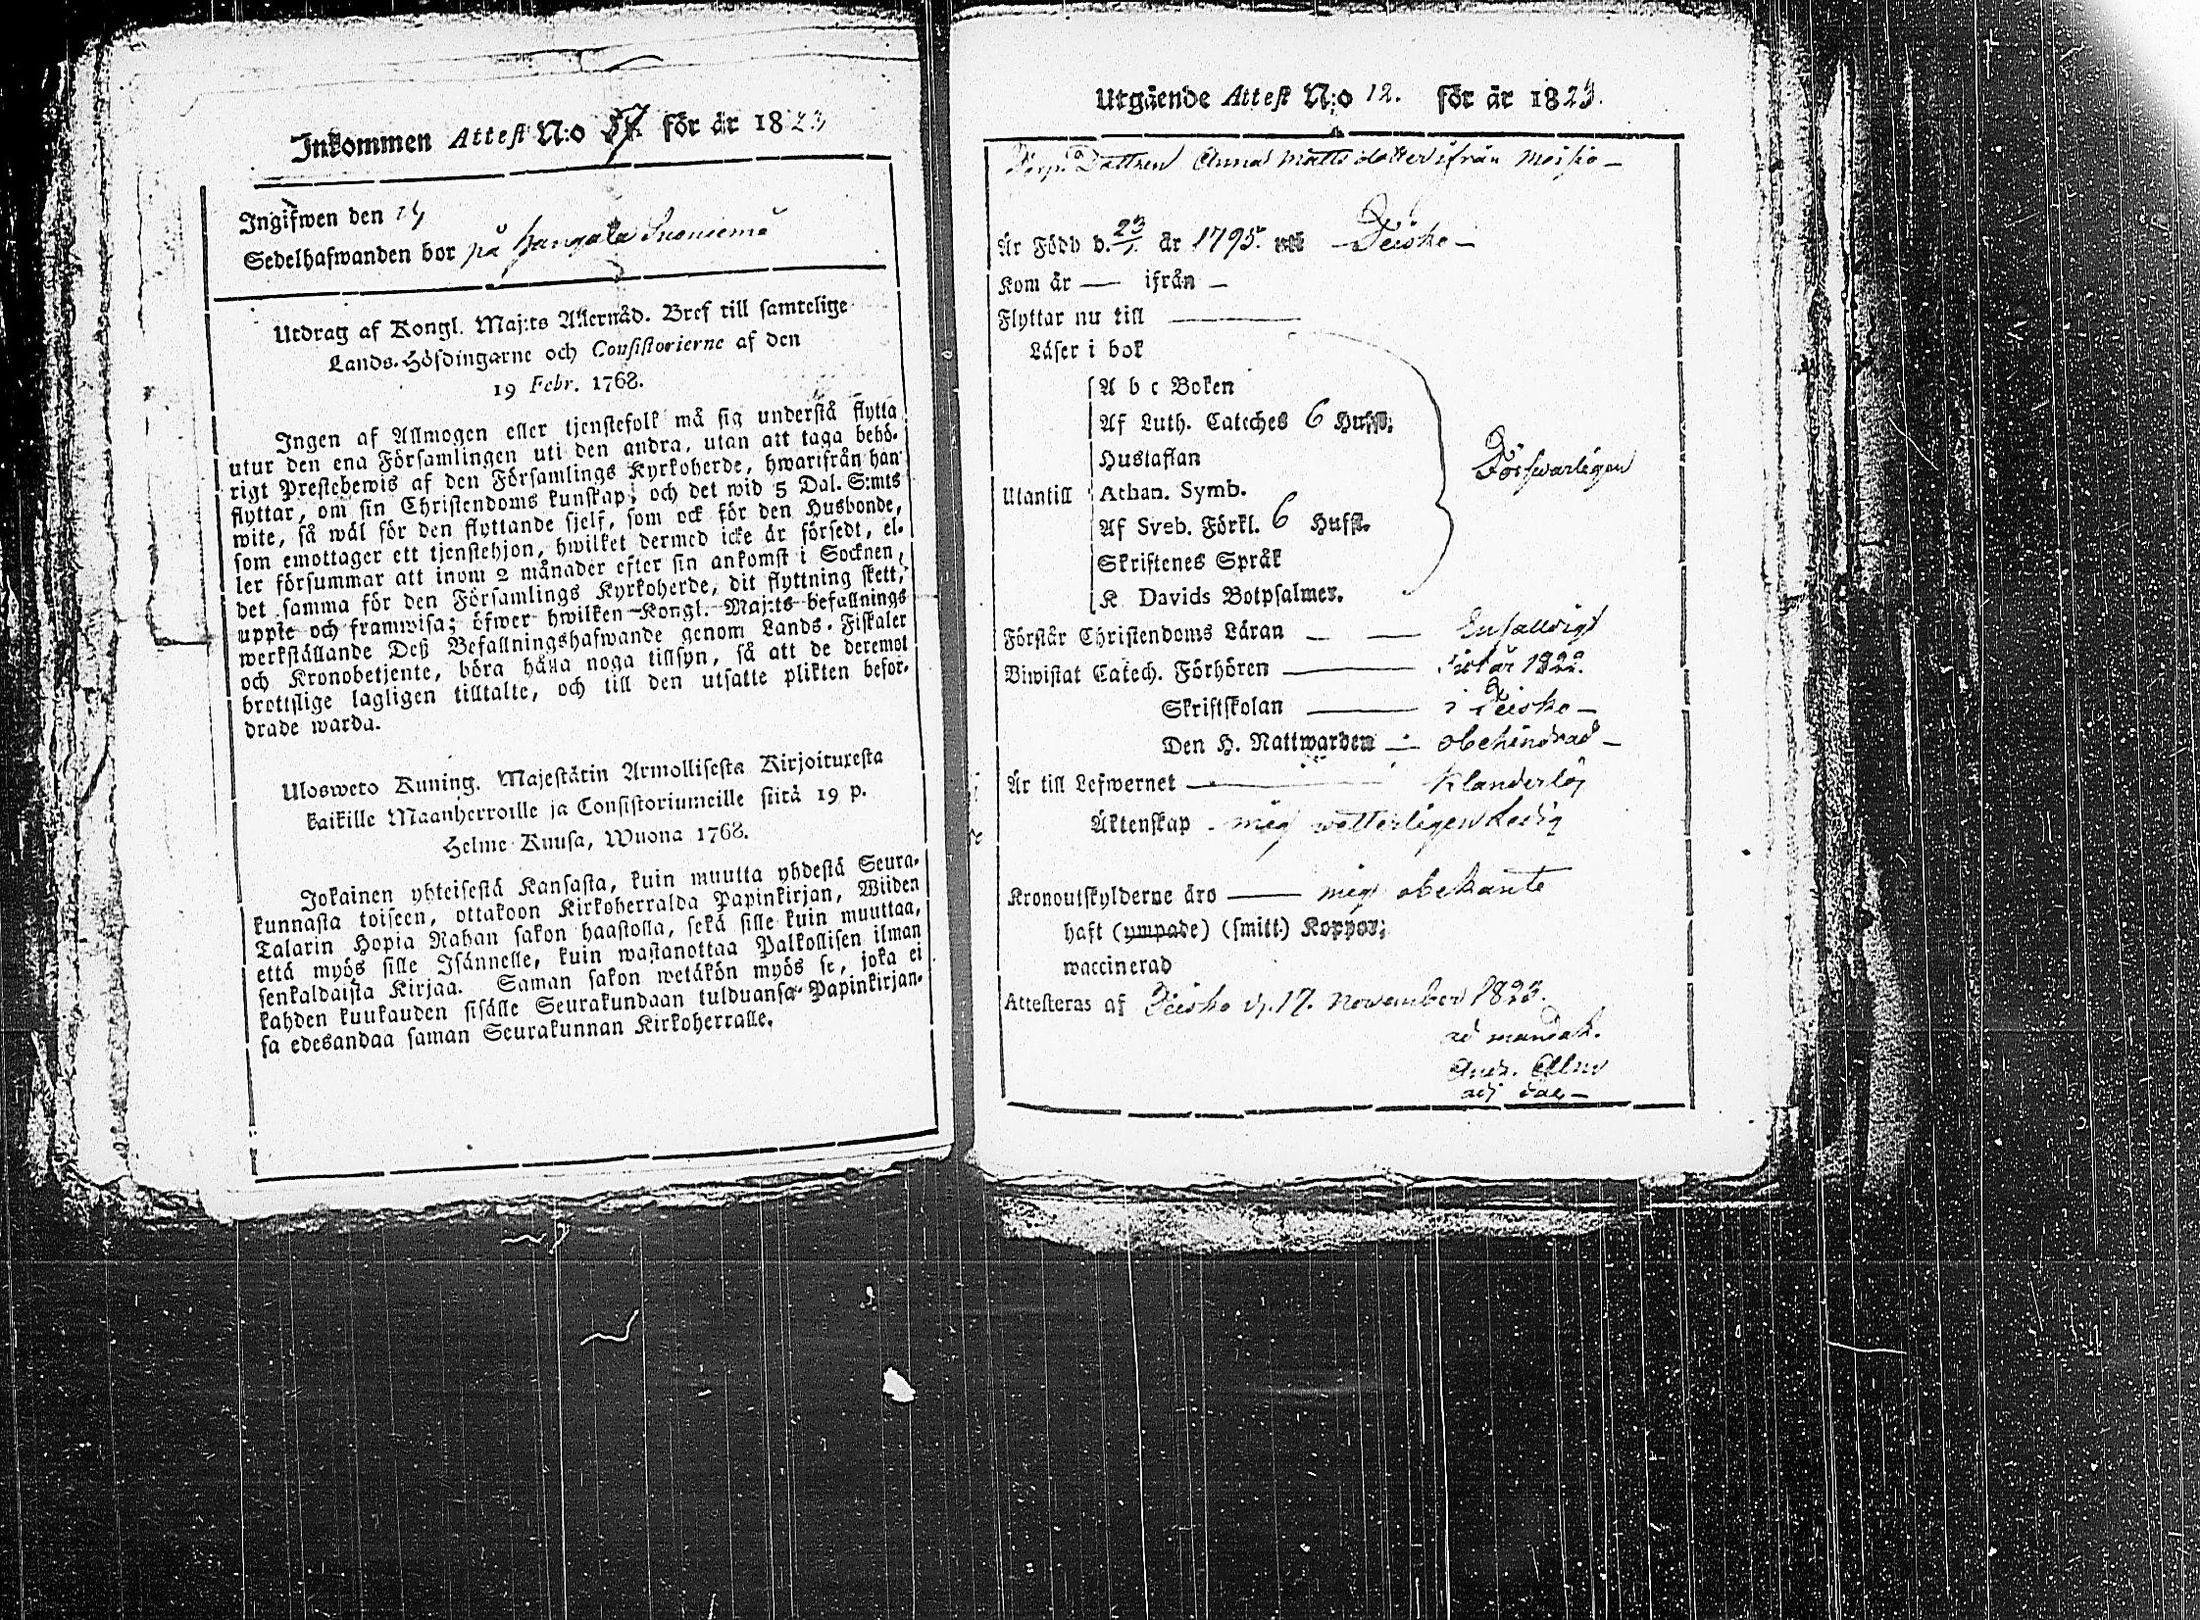 Inkommen Attest N:o 57 för år 1823
Ingifwen den
Sedelhafwanden bor på Hangala Suoniemi
Utdrag af Kongl. Maj:ts Allernåd. Bref till samtelige
Lands-Höfdingarne och Consistorierne af den
19 Febr. 1768.
Ingen af Allmogen eller tjenstefolk må sig understå flytta
utur den ena Församlingen uti den andra, utan att taga behö-
rigt Prestebewis af den Församlings Kyrkoherde, hwarifrån han
flyttar, om sin Christendoms kunskap; och det wid 5 Dal. S:mts
wite, så wäl för den flyttande sjelf, som ock för den Husbonde,
som emottager ett tjenstehjon, hwilket dermed icke är försedt, el-
ler försummar att inom 2 månader efter sin ankomst i Socknen,
det samma för den Församlings Kyrkoherde, dit flyttning skett,
uppte och framwisa; öfwer hwilken Kongl. Maj:ts befallnings
werkställande Deß Befallningshafwande genom Lands-Fiskaler
och Kronobetjente, böra hålla noga tillsyn, så att de deremot
brottslige lagligen tilltalte, och till den utsatte plikten befor-
drade warda.
Ulosweto Kuning. Majestätin Armollisesta Kirjoituxesta
kaikille Maanherroille ja Consistoriumeille siitä 19 p.
Helme Kuusa, Wuona 1768.
Jokainen yhteisestä Kansasta, kuin muutta yhdestä Seura-
kunnasta toiseen, ottakoon Kirkoherralda Papinkirjan, Wiiden
Talarin Hopia Rahan sakon haastolla, sekä sille kuin muuttaa,
että myös sille Isännelle, kuin wastanottaa Palkollisen ilman
senkaldaista Kirjaa. Saman sakon wetäkön myös se, joka ei
kahden kuukauden sisälle Seurakundaan tulduansa Papinkirjan-
sa edesandaa saman Seurakunnan Kirkoherralle.
Utgående Attest N:o 12. för år 1823.
Torp. Dottren Anna Matts dotter ifrån Moisio
Är Född d. 23/1. år 1795. uti Teisko
Kom år — ifrån —
Flyttar nu till —
Läser i bok
A b c Boken
Af Luth. Cateches 6 Hufst;
Hustaflan
Utantill Athan. Symb.
Af Sveb. Förkl. 6 Hufst.
Skriftenes Språk
K Davids Botpsalmer.
Försvarligen
Förstår Christendoms Läran — — Enfaldigt
Biwistat Catech. Förhören — sistår 1822.
Skriftskolan — i Teisko —
Den H. Nattwarden — obehindrad —
Är till Lefwernet — Klanderlös
Äktenskap mig wetterligen Ledig
Kronoutskylderne äro — mig obekante
haft (ympade) (smitt.) Koppor;
waccinerad
Attesteras af Teisko d. 17. November 1823.
ad mandat.
Andr. Alm
adj. Sac.